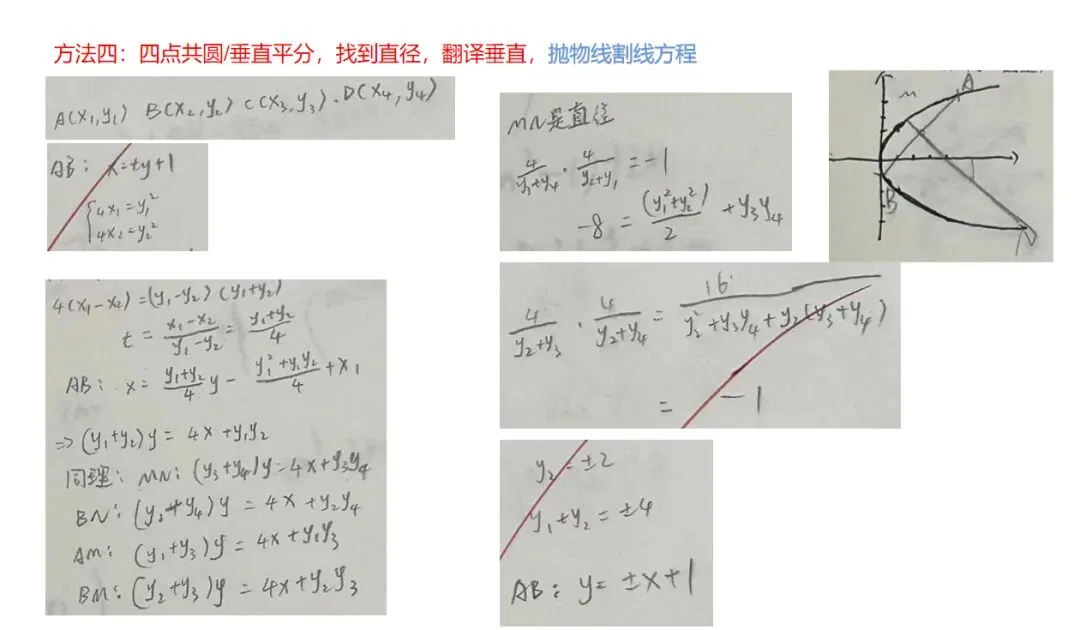 方法四：四点共圆/垂直平分，找到直径，翻译垂直，抛物线割线方程
A(x₁,y₁) B(x₂,y₂) C(x₃,y₃). D(x₄,y₄)
AB: x=ty+1
{4x₁=y₁²
4x₂=y₂²
4(x₁-x₂)=(y₁-y₂)(y₁+y₂)
t = (x₁-x₂)/(y₁-y₂) = (y₁+y₂)/4
AB: x= (y₁+y₂)/4 y - (y₁²+y₁y₂)/4 + x₁
=> (y₁+y₂)y = 4x+y₁y₂
同理: MN: (y₃+y₄)y=4x+y₃y₄
BN: (y₂+y₄)y = 4x+y₂y₄
AM: (y₁+y₃)y=4x+y₁y₃
BM: (y₂+y₃)y = 4x+y₂y₃
MN是直径
4/(y₃+y₄) · 4/(y₂+y₁) = -1
-8 = (y₁²+y₂²)/2 + y₃y₄
4/(y₂+y₃) · 4/(y₂+y₄) = 16/(y₂²+y₃y₄+y₂(y₃+y₄))
= -1
y₂=±2
y₁+y₂=±4
AB: y=±x+1
M
A
B
N